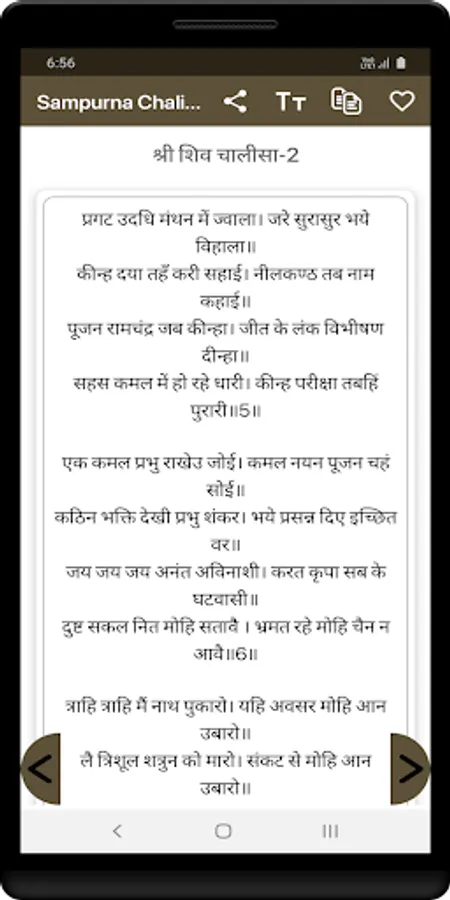 6:56
Sampurna Chali...
श्री शिव चालीसा-2
प्रगट उदधि मंथन में ज्वाला। जरे सुरासुर भये
विहाला॥
कीन्ह दया तहँ करी सहाई। नीलकण्ठ तब नाम
कहाई॥
पूजन रामचंद्र जब कीन्हा। जीत के लंक विभीषण
दीन्हा॥
सहस कमल में हो रहे धारी। कीन्ह परीक्षा तबहिं
पुरारी॥5॥
एक कमल प्रभु राखेउ जोई। कमल नयन पूजन चहं
सोई॥
कठिन भक्ति देखी प्रभु शंकर। भये प्रसन्न दिए इच्छित
वर॥
जय जय जय अनंत अविनाशी। करत कृपा सब के
घटवासी॥
दुष्ट सकल नित मोहि सतावै । भ्रमत रहे मोहि चैन न
आवै॥6॥
त्राहि त्राहि मैं नाथ पुकारो। यहि अवसर मोहि आन
उबारो॥
लै त्रिशूल शत्रुन को मारो। संकट से मोहि आन
उबारो॥